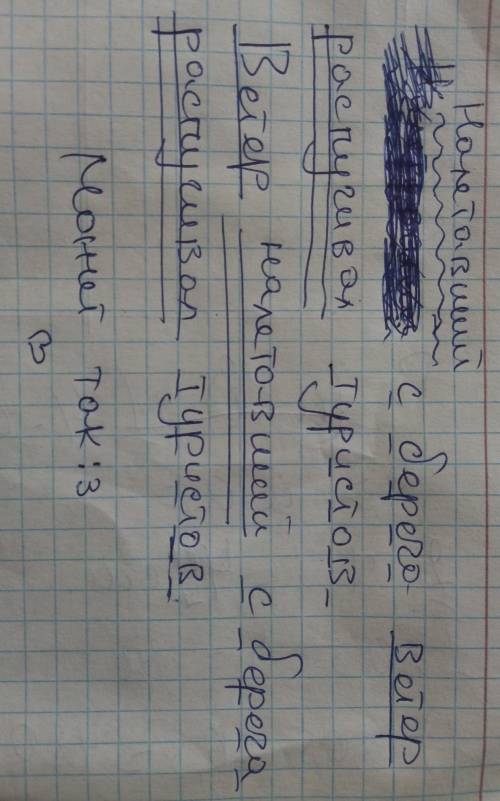 Налетавший с берега ветер
распугивал туристов
Ветер налетавший с берега
распугивал туристов
Может так:3